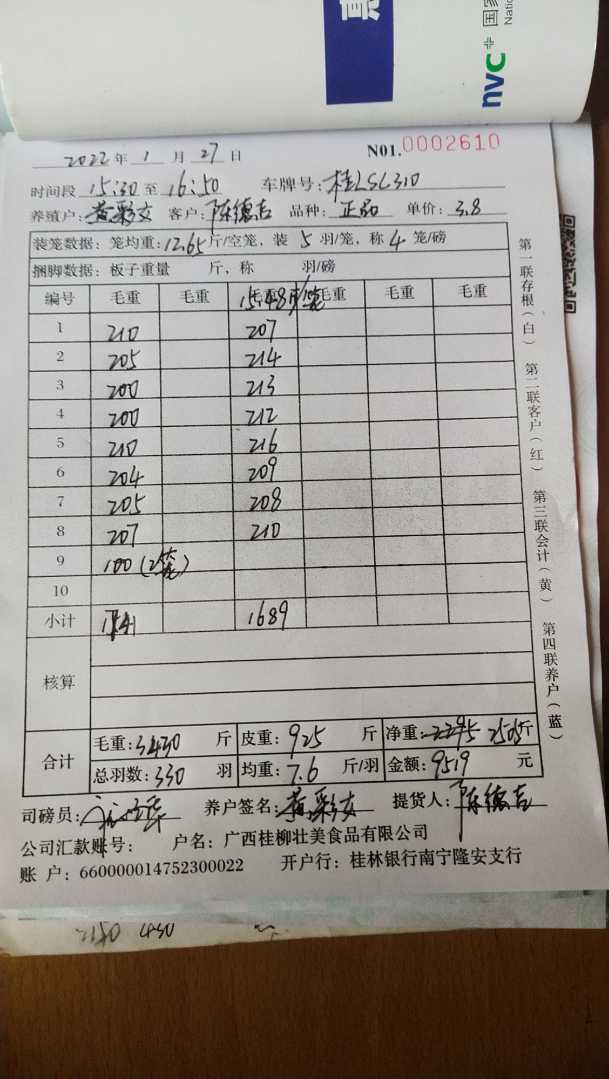 nvc
国家
Nation
2022年 1 月 27 日 N01.0002610
时间段 15:30 至 16:50 车牌号: 桂LSL310
养殖户: 黄彩交 客户: 陈德吉 品种: 正品 单价: 3.8
装笼数据: 笼均重: 12.65 斤/空笼, 装 5 羽/笼, 称 4 笼/磅
捆脚数据: 板子重量 斤, 称 羽/磅
编号 毛重 毛重 毛重 毛重 毛重 毛重
15.48斤/笼
1 210 207
2 205 214
3 200 213
4 200 212
5 210 216
6 204 209
7 205 208
8 207 210
9 100 (2笼)
10
小计 1741 1689
核算
合计 毛重: 3430 斤 皮重: 925 斤 净重: 2295 2505斤
总羽数: 330 羽 均重: 7.6 斤/羽 金额: 9519 元
司磅员: 养户签名: 黄彩交 提货人: 陈德吉
公司汇款账号: 户名: 广西桂柳壮美食品有限公司
账 户: 660000014752300022 开户行: 桂林银行南宁隆安支行
第一联存根(白) 第二联客户(红) 第三联会计(黄) 第四联养户(蓝)
2150 430